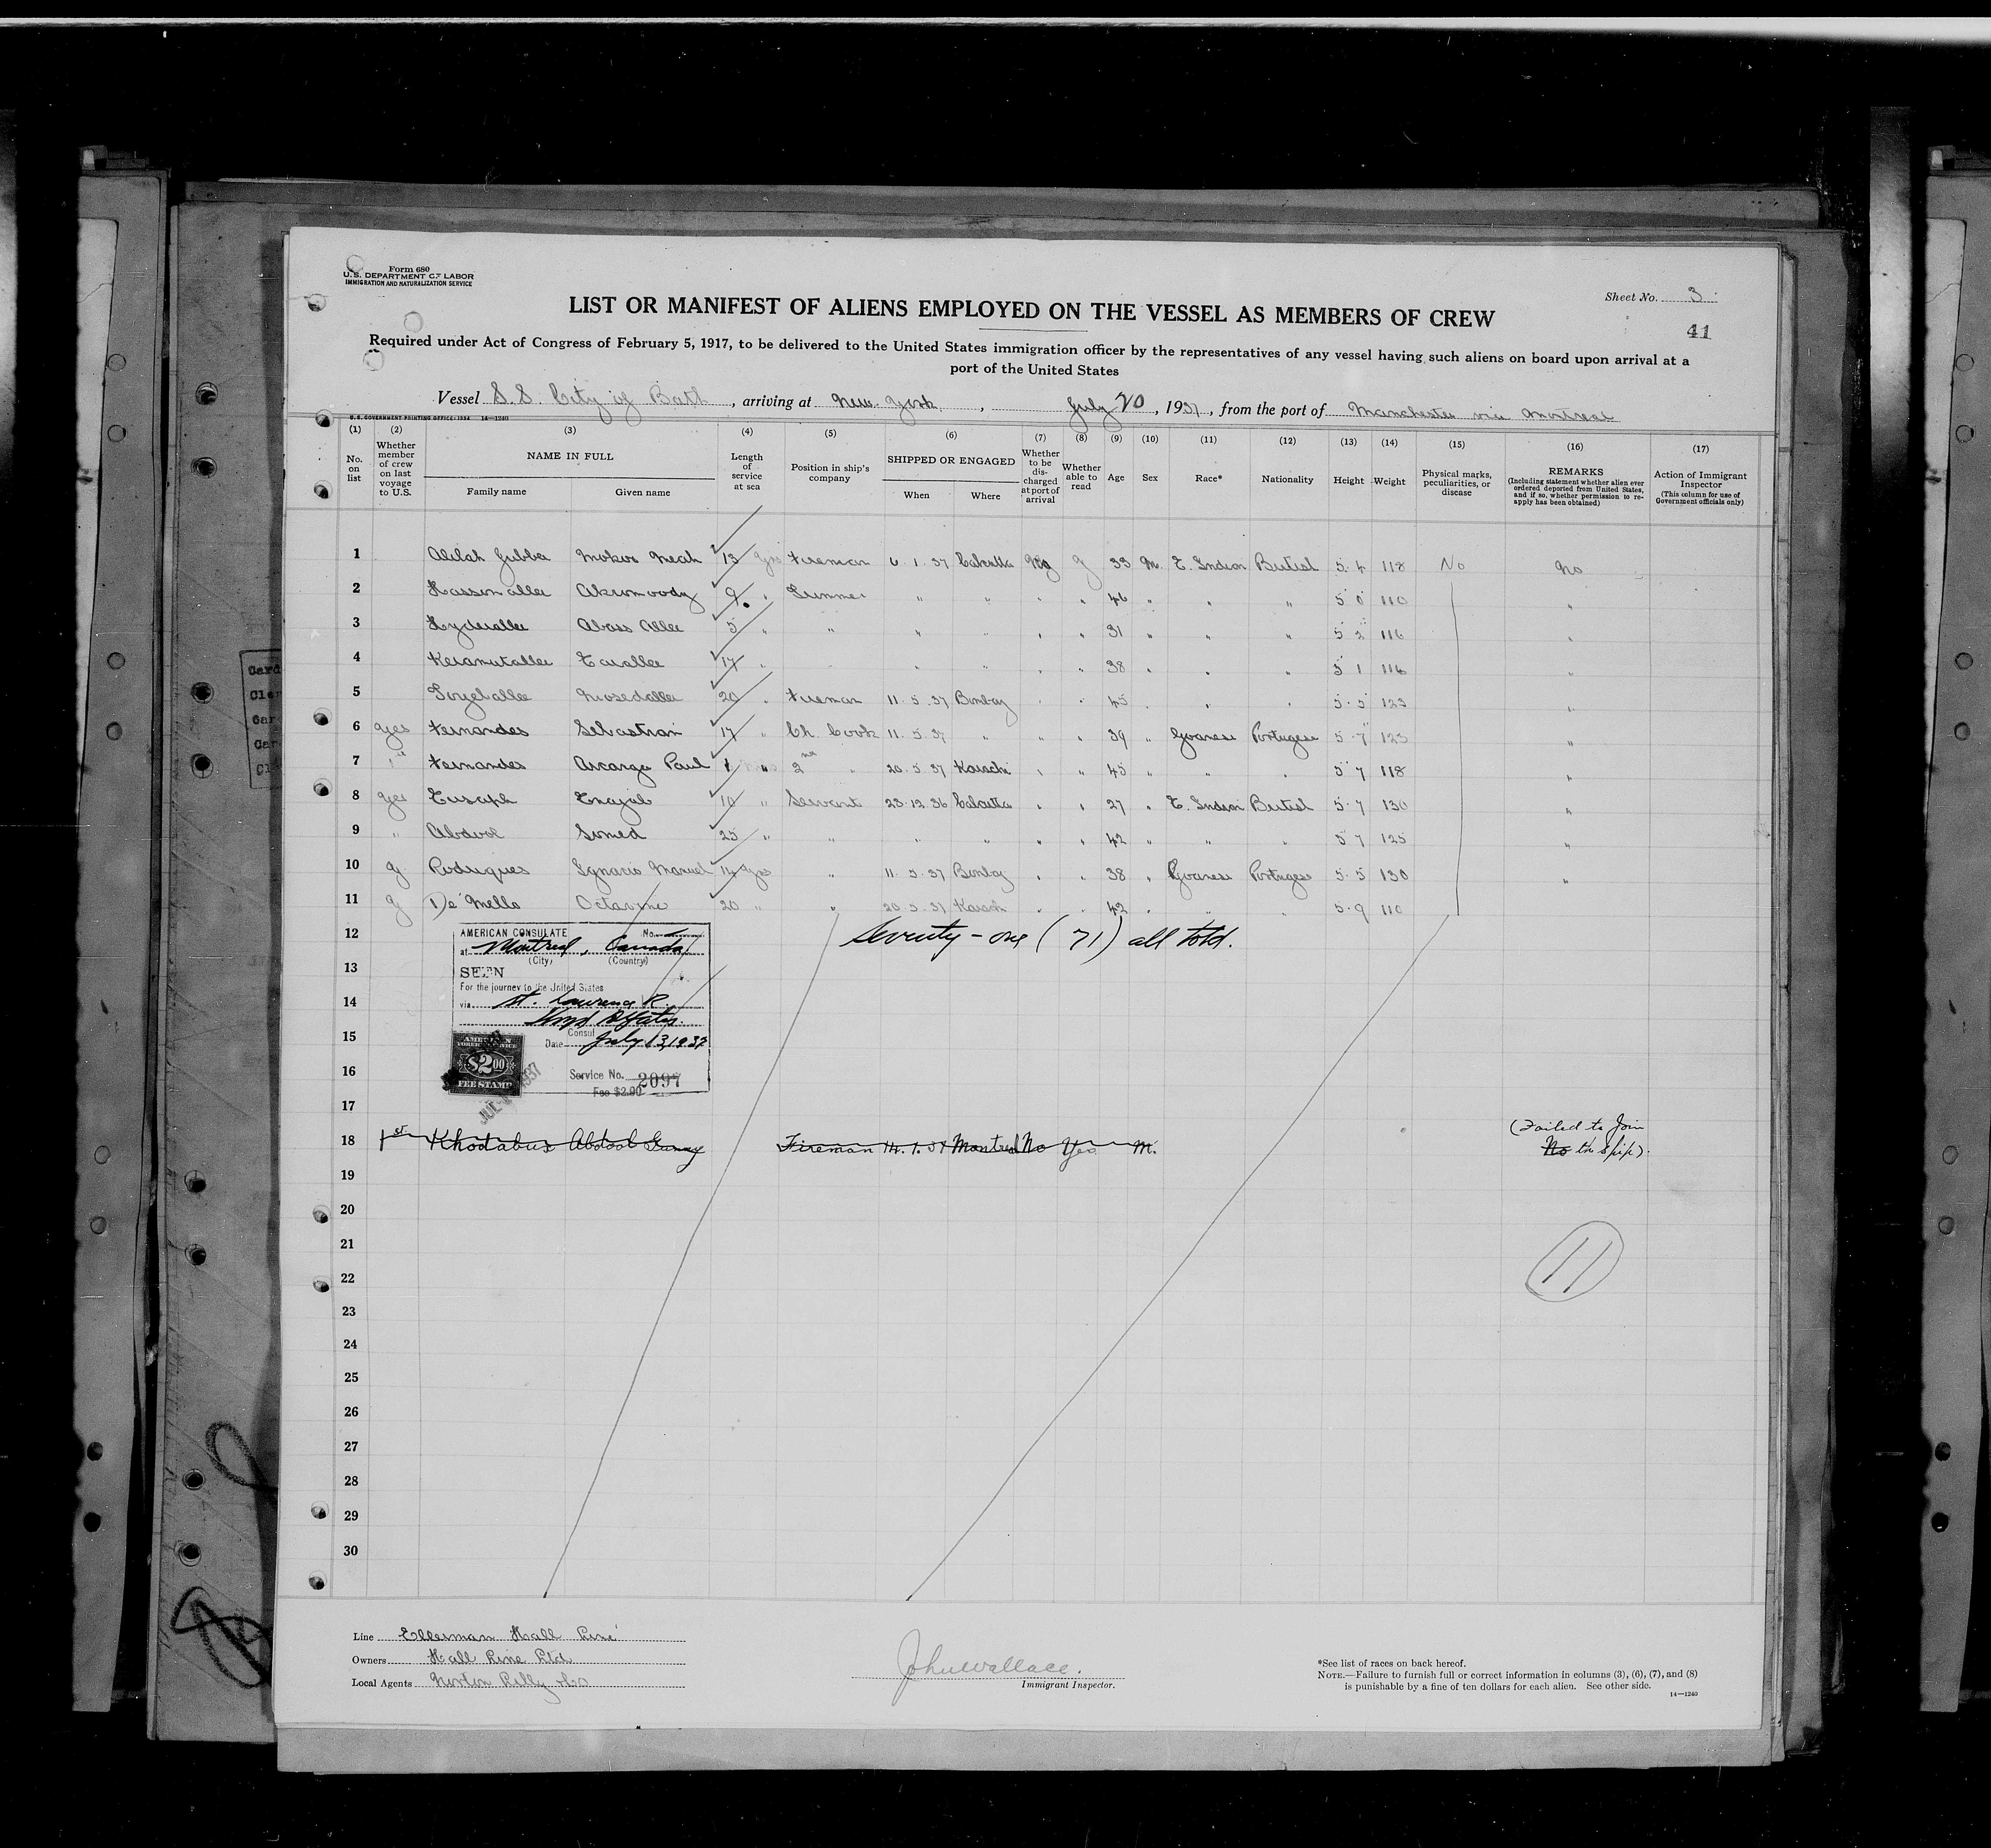 Form 680
U.S. DEPARTMENT OF LABOR
IMMIGRATION AND NATURALIZATION SERVICE
Sheet No. 3
LIST OR MANIFEST OF ALIENS EMPLOYED ON THE VESSEL AS MEMBERS OF CREW
41
Required under Act of Congress of February 5, 1917, to be delivered to the United States immigration officer by the representatives of any vessel having such aliens on board upon arrival at a
port of the United States
Vessel S.S. City of Bath, arriving at New York, July 20, 1937, from the port of Manchester via Montreal
U.S. GOVERNMENT PRINTING OFFICE: 1934 14—1240
(1) (2) (3) (4) (5) (6) (7) (8) (9) (10) (11) (12) (13) (14) (15) (16) (17)
No. on list
Whether member of crew on last voyage to U.S.
NAME IN FULL
Family name Given name
Length of service at sea
Position in ship's company
SHIPPED OR ENGAGED
When Where
Whether to be discharged at port of arrival
Whether able to read
Age
Sex
Race*
Nationality
Height
Weight
Physical marks, peculiarities, or disease
REMARKS
(Including statement whether alien ever ordered deported from United States, and if so, whether permission to re-apply has been obtained)
Action of Immigrant Inspector
(This column for use of Government officials only)
1 Jubba 13 yrs Fireman 6.1.37 Calcutta y 33 M. E. Indian British 5.4 118 No No
2 9 " " " " " 46 " " " 5 0 110 "
3 Abass Allee 5 " " " " " " 31 " " " 5 2 116 "
4 Keramutallee 17 " " " " " 38 " " " 5 1 116 "
5 20 " Fireman 11.5.37 Bombay " " 45 " " " 5.5 123 "
6 yes Fernandes Sebastian 17 " Ch. Cook 11.5.37 " " " 39 " Goanese Portugese 5.7 123 "
7 " Fernandes Paul 2nd " 20.5.37 Karachi " " 45 " " " 5 7 118 "
8 yes 10 " Servant 23.12.36 Calcutta " " 27 " E. Indian British 5.7 130 "
9 " Abdool Somed 25 " " " " " " 42 " " " 5 7 125 "
10 y Rodrigues Ignacio Manuel 14 yrs " 11.5.37 Bombay " " 38 " Goanese Portugese 5.5 130 "
11 y De Mello 20 " " 20.5.37 Karachi " " 42 " " " 5.9 110
12 Seventy-one (71) all told.
AMERICAN CONSULATE No.
at Montreal, Canada
(City) (Country)
13
SEEN
For the journey to the United States
14
via St. Lawrence R.
Consul
15
Date July 13, 1937
AMERICAN FOREIGN SERVICE
$2.00
FEE STAMP
16
Service No. 2097
Fee $2.00
17
18 1st Khodabux Abdool Gunny Fireman Montreal No Yes M. (Failed to Join
No the ship).
19
20
21
22
11
23
24
25
26
27
28
29
30
Line Ellerman Hall Line
Owners Hall Line Ltd
Local Agents Norton Lilly & Co
John Wallace.
Immigrant Inspector.
*See list of races on back hereof.
NOTE.—Failure to furnish full or correct information in columns (3), (6), (7), and (8)
is punishable by a fine of ten dollars for each alien. See other side.
14—1240